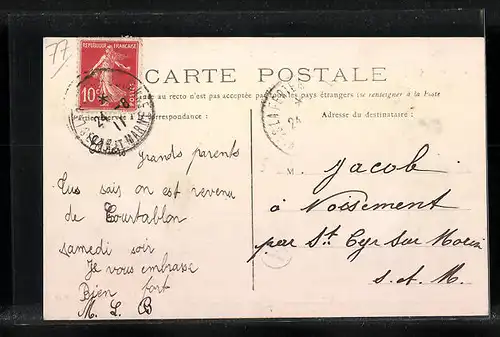 77
REPUBLIQUE FRANÇAISE
10
CARTE POSTALE
au recto n'est pas acceptée par les pays étrangers (Se renseigner à la Poste
Partie réservée à la correspondance :
Adresse du destinataire :
ET-MARNE
24 - 8
11
24
grands parents
sais on est revenu
de
samedi soir
Je vous embrasse
Bien fort
M. L. B
M. Jacob
à Noisement
par St Cyr sur Morin
S. et M.